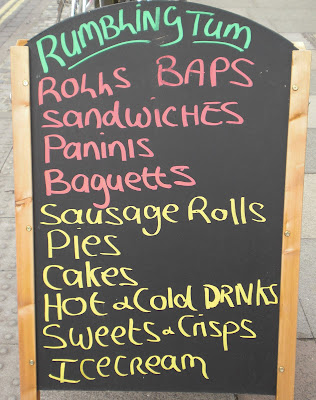 RUMBLING TUM
ROLLS BAPS
SANDWICHES
Paninis
Baguetts
Sausage Rolls
Pies
Cakes
HOT & Cold DRNKS
Sweets & Crisps
Icecream